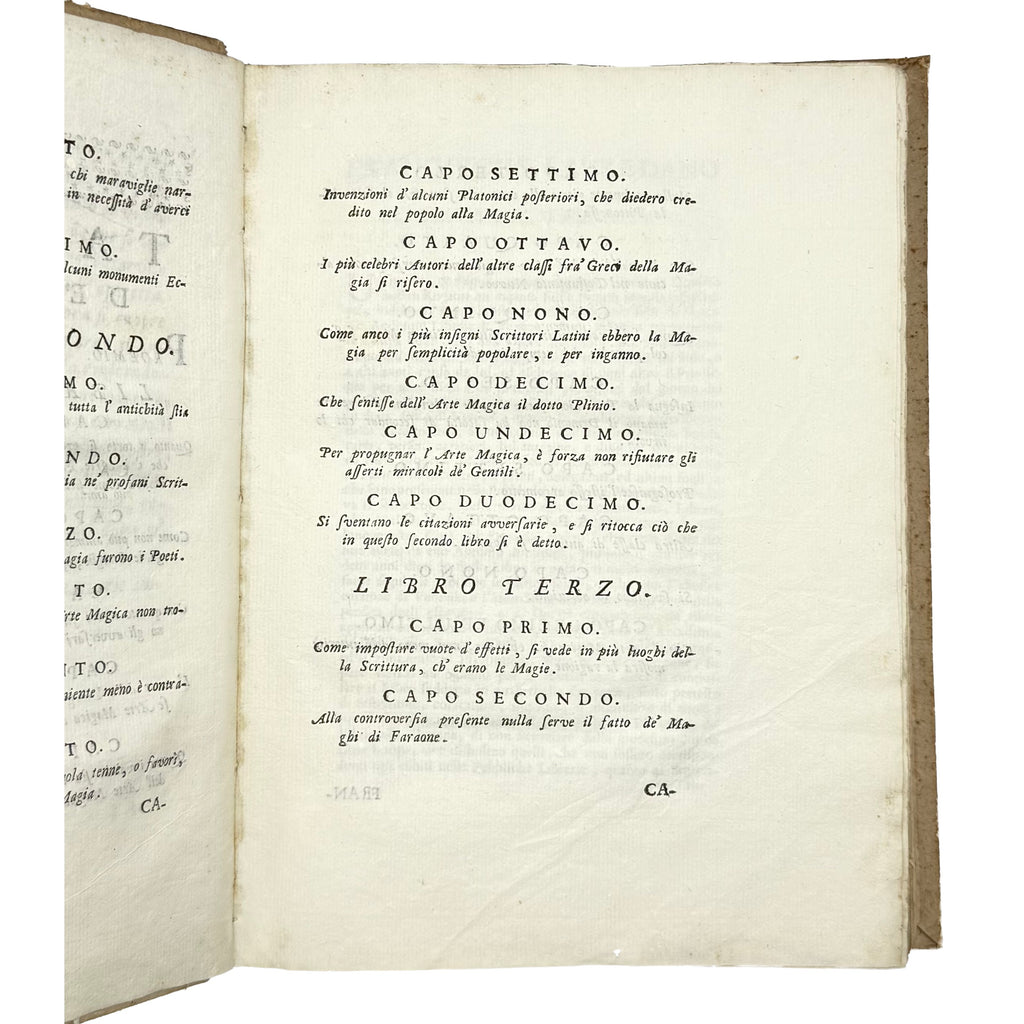 TO.
chi maraviglie nar-
in neceſſità d' averci
IMO.
lcuni monumenti Ec-
ONDO.
MO.
tutta l' antichità ſtia
NDO.
ia ne' profani Scrit-
ZO.
agia furono i Poeti.
TO.
rte Magica non tro-
TO.
niente meno è contra-
TO.
ola tenne, o favorì,
Magia.
CA-
CAPO SETTIMO.
Invenzioni d' alcuni Platonici poſteriori, che diedero cre-
dito nel popolo alla Magia.
CAPO OTTAVO.
I più celebri Autori dell' altre claſſi fra' Greci della Ma-
gia ſi riſero.
CAPO NONO.
Come anco i più inſigni Scrittori Latini ebbero la Ma-
gia per ſemplicità popolare, e per inganno.
CAPO DECIMO.
Che ſentiſſe dell' Arte Magica il dotto Plinio.
CAPO UNDECIMO.
Per propugnar l' Arte Magica, è forza non rifiutare gli
aſſerti miracoli de' Gentili.
CAPO DUODECIMO.
Si ſventano le citazioni avverſarie, e ſi ritocca ciò che
in queſto ſecondo libro ſi è detto.
LIBRO TERZO.
CAPO PRIMO.
Come impoſture vuote d' effetti, ſi vede in più luoghi del-
la Scrittura, ch' erano le Magie.
CAPO SECONDO.
Alla controverſia preſente nulla ſerve il fatto de' Ma-
ghi di Faraone.
CA-